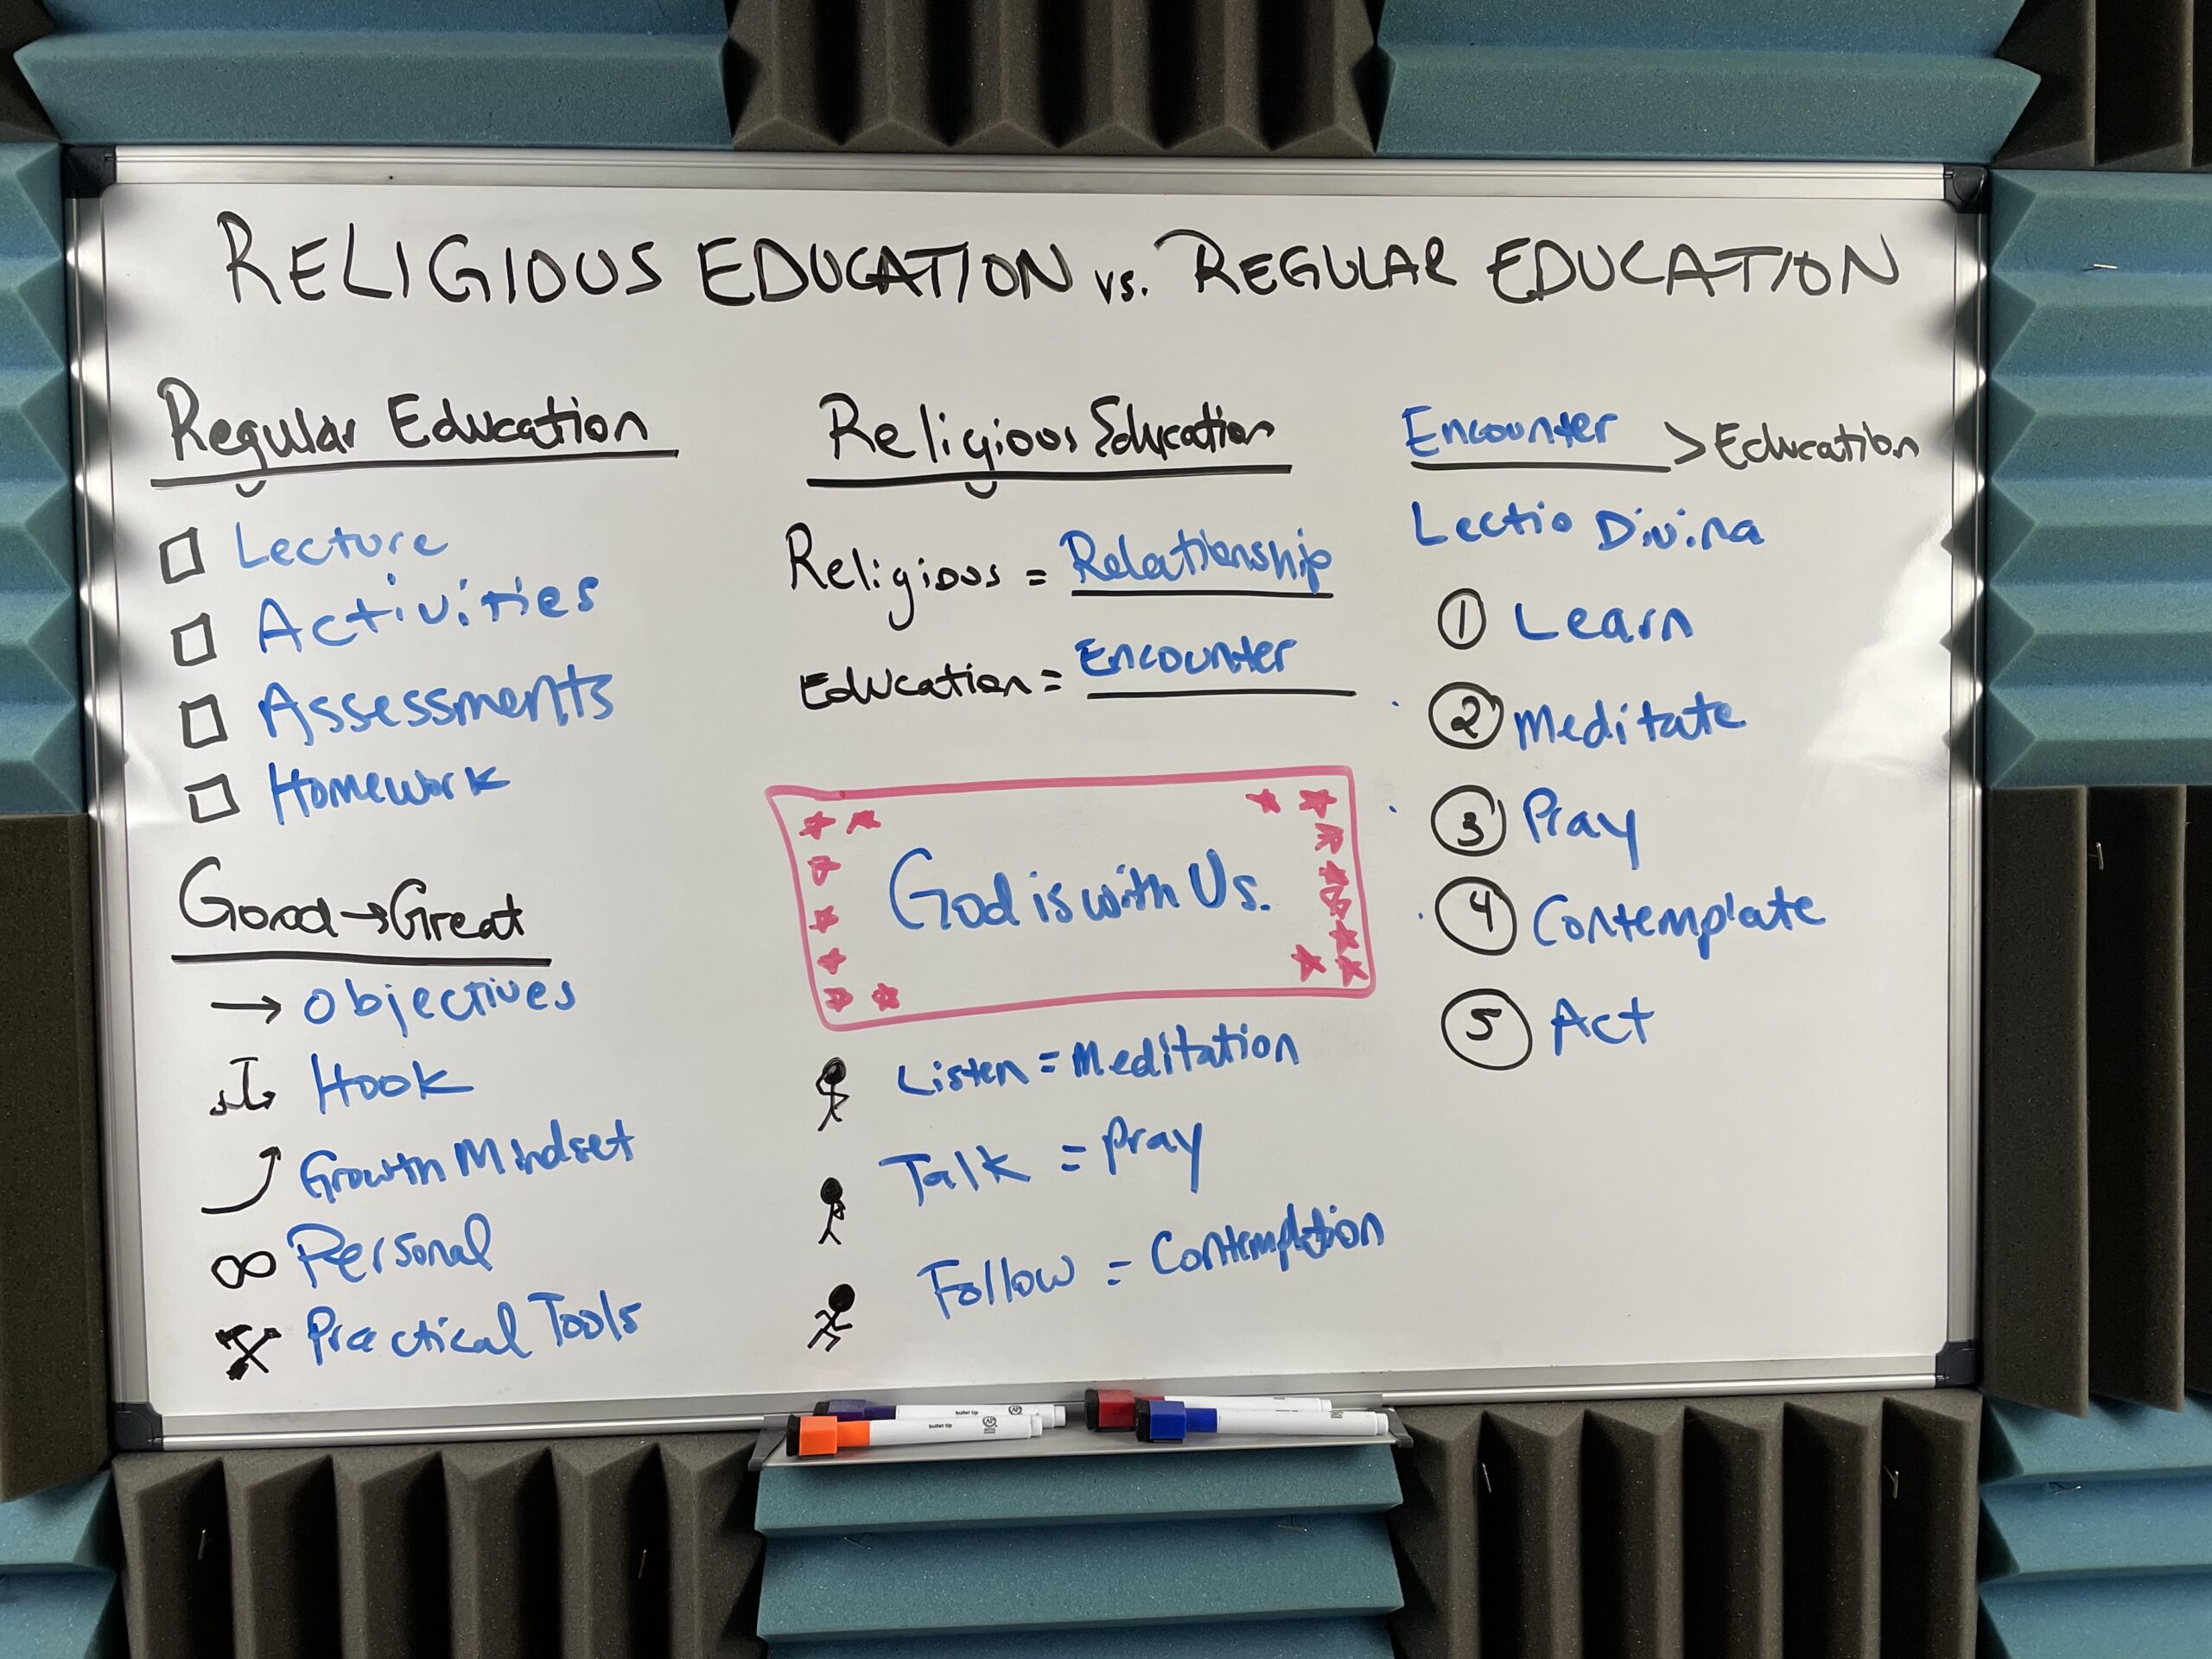 RELIGIOUS EDUCATION vs. REGULAR EDUCATION
Regular Education
Lecture
Activities
Assessments
Homework
Good → Great
→ Objectives
Hook
Growth Mindset
∞ Personal
Practical Tools
Religious Education
Religious = Relationship
Education = Encounter
God is with Us.
Listen = Meditation
Talk = Pray
Follow = Contemplation
Encounter > Education
Lectio Divina
1 Learn
2 Meditate
3 Pray
4 Contemplate
5 Act
bullet tip
bullet tip